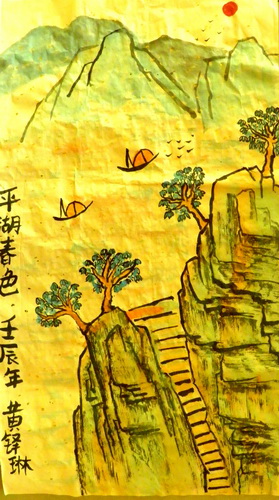 平湖春色 壬辰年 黄铎琳